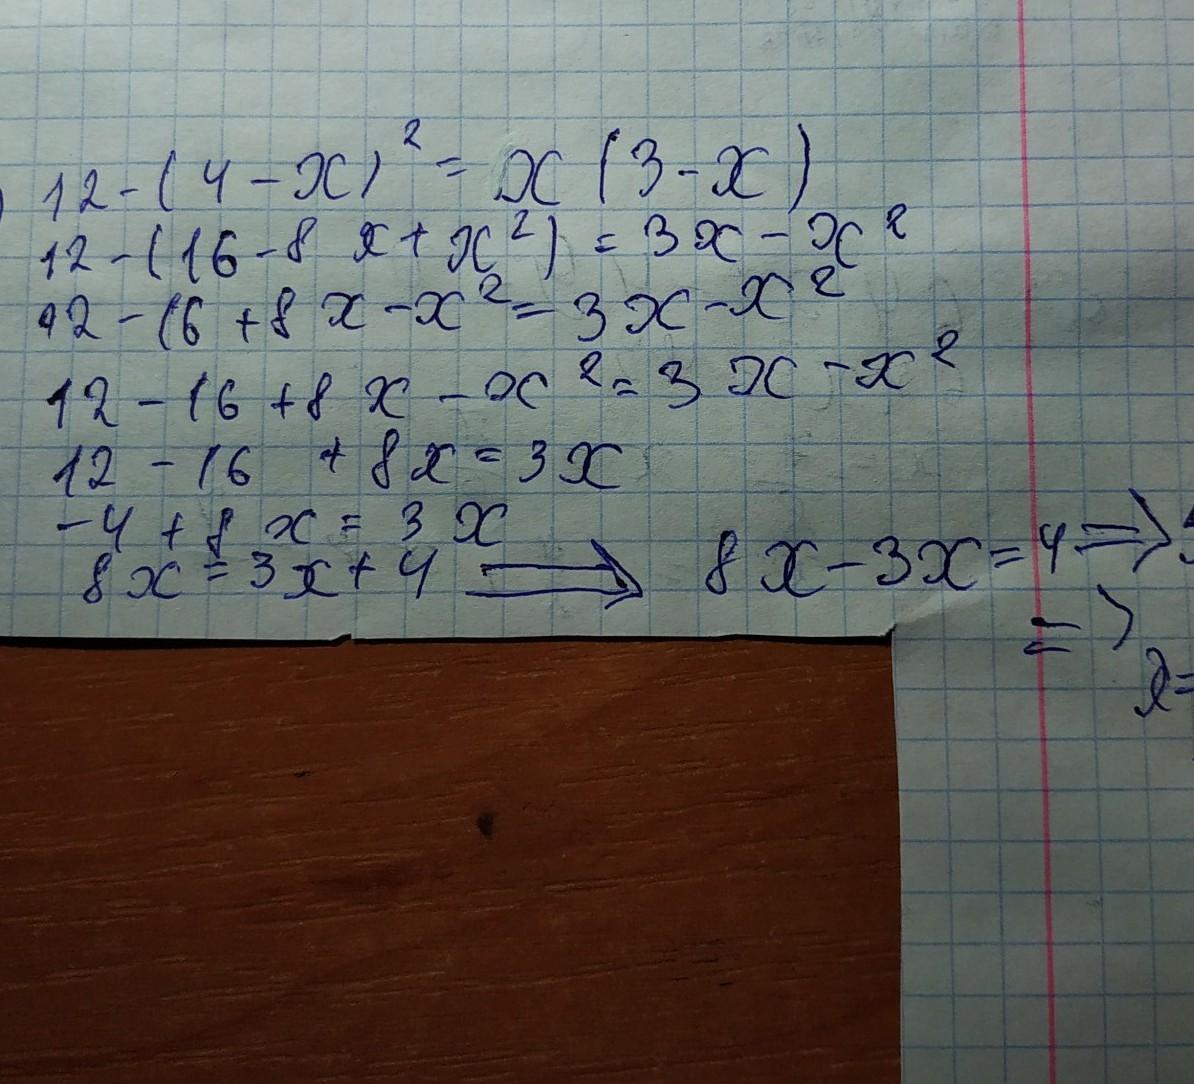 12-(4-x)²=x(3-x)
12-(16-8x+x²)=3x-x²
12-16+8x-x²=3x-x²
12-16+8x-x²=3x-x²
12-16+8x=3x
-4+8x=3x
8x=3x+4 ⇒ 8x-3x=4 ⇒
⇒
x=